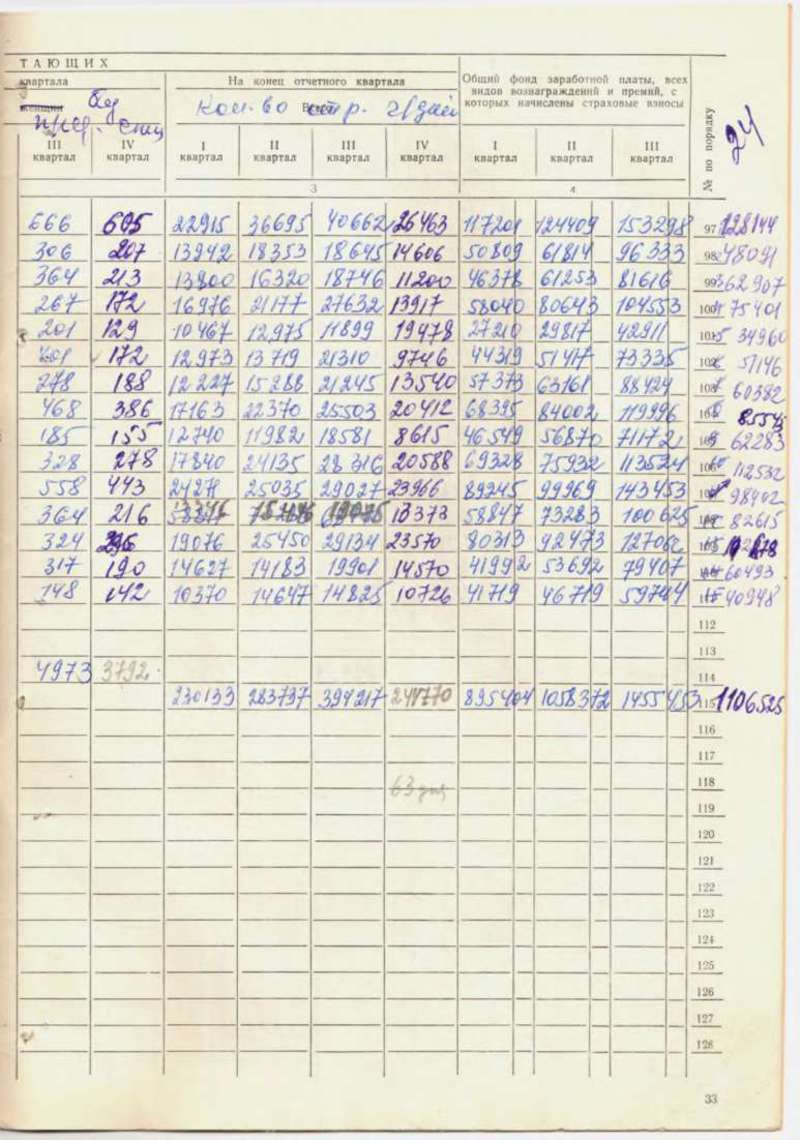 ТАЮЩИХ
квартала На конец отчетного квартала Общий фонд заработной платы, всех видов вознаграждений и премий, с которых начислены страховые взносы № по порядку
женщин без Всего Кол-во стр. ч/дней 24
III квартал IV квартал I квартал II квартал III квартал IV квартал I квартал II квартал III квартал
3 4
666 605 22915 36695 40662 26463 117201 124409 153298 97 128144
306 207 13942 18353 18645 14606 50809 61814 96333 98 48091
364 213 13800 16320 18746 11200 46378 61253 81616 99 62907
267 172 16976 21177 27632 13917 58040 80643 104553 100 75401
201 129 10467 12975 11899 19478 27210 29817 42911 101 34960
201 172 12973 13719 21310 9746 44319 51417 73335 51146
278 188 12227 15288 21245 13540 57373 63161 88424 60382
468 386 17163 22370 25503 20412 68395 84002 119996
185 155 12740 11982 18581 8615 46549 56870 71172 62283
328 278 17840 24135 28316 20588 69328 75932 113524 106 112532
558 443 24271 25035 29027 23966 89245 99969 143453 98402
364 216 18373 58847 73283 100625 82615
324 236 19076 25450 29134 23570 80313 92473
317 190 14627 14183 19901 14570 41992 53692 79407 60493
148 142 10370 14647 14825 10726 41719 46719 59744 40948
112
113
4973 3792 114
230133 283737 394217 244770 895404 1058372 1455453 115 1106525
116
117
63 дня 118
119
120
121
122
123
124
125
126
127
128
33